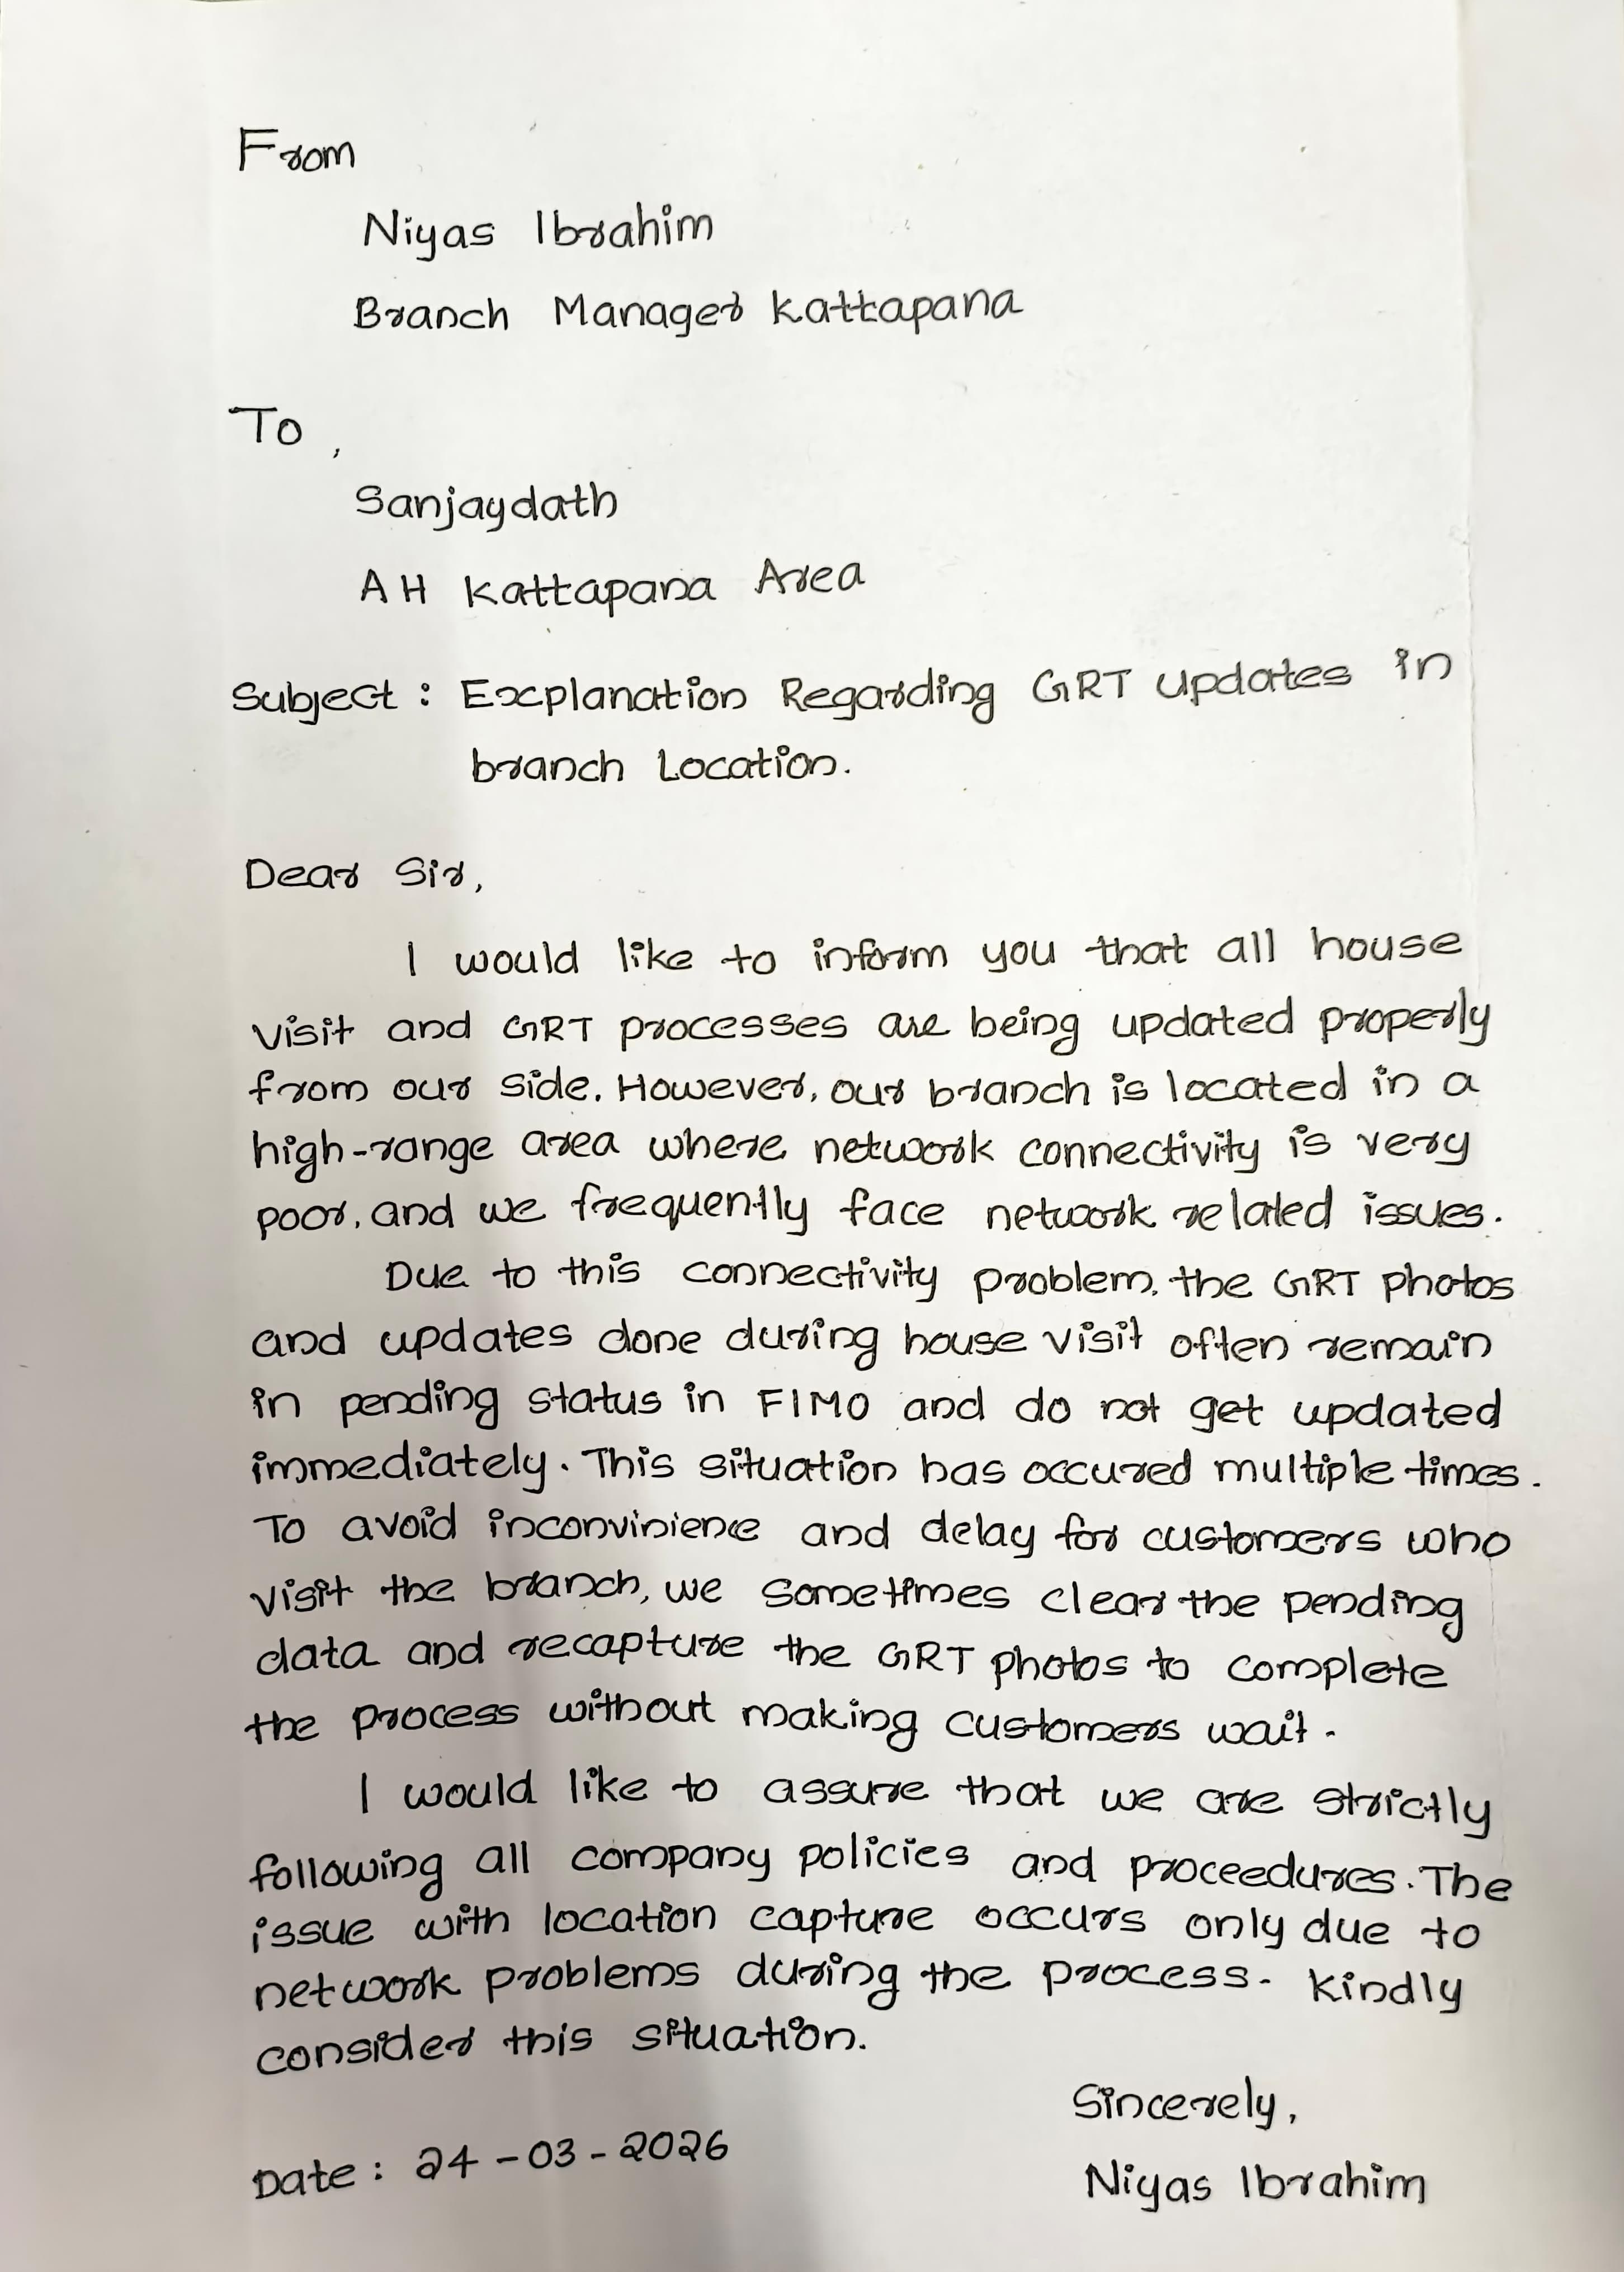 From
Niyas Ibrahim
Branch Manager Kattapana
To,
Sanjaydath
AH Kattapana Area
Subject : Explanation Regarding GRT updates in
branch Location.
Dear Sir,
I would like to inform you that all house
visit and GRT processes are being updated properly
from our side. However, our branch is located in a
high-range area where network connectivity is very
poor, and we frequently face network related issues.
Due to this connectivity problem, the GRT photos
and updates done during house visit often remain
in pending status in FIMO and do not get updated
immediately. This situation has occured multiple times.
To avoid inconvinience and delay for customers who
visit the branch, we sometimes clear the pending
data and recapture the GRT photos to complete
the process without making customers wait.
I would like to assure that we are strictly
following all company policies and proceedures. The
issue with location capture occurs only due to
network problems during the process. Kindly
consider this situation.
Sincerely,
Date : 24-03-2026
Niyas Ibrahim